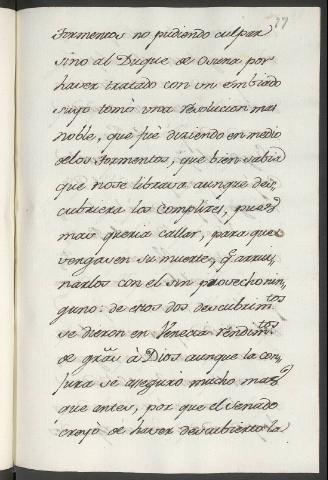 77
tormentos no pudiendo culpar
sino al Duque de Osuna por
haver tratado con un embiado
suyo tomó una resolucion mas
noble, que fué diziendo en medio
delos tormentos, que bien sabia
que nose librava aunque des,
cubriera los complizes, pues
mas queria callar, para que
vengasen su muerte, q̃ arrui,
narlos con el sin provecho nin,
guno: de estos dos descubrim.tos
se dieron en Venecia rendim.tos
de gras à Dios aunque la con,
jura se asseguró mucho mas
que antes, por que el senado
creyò de haver descubierto la